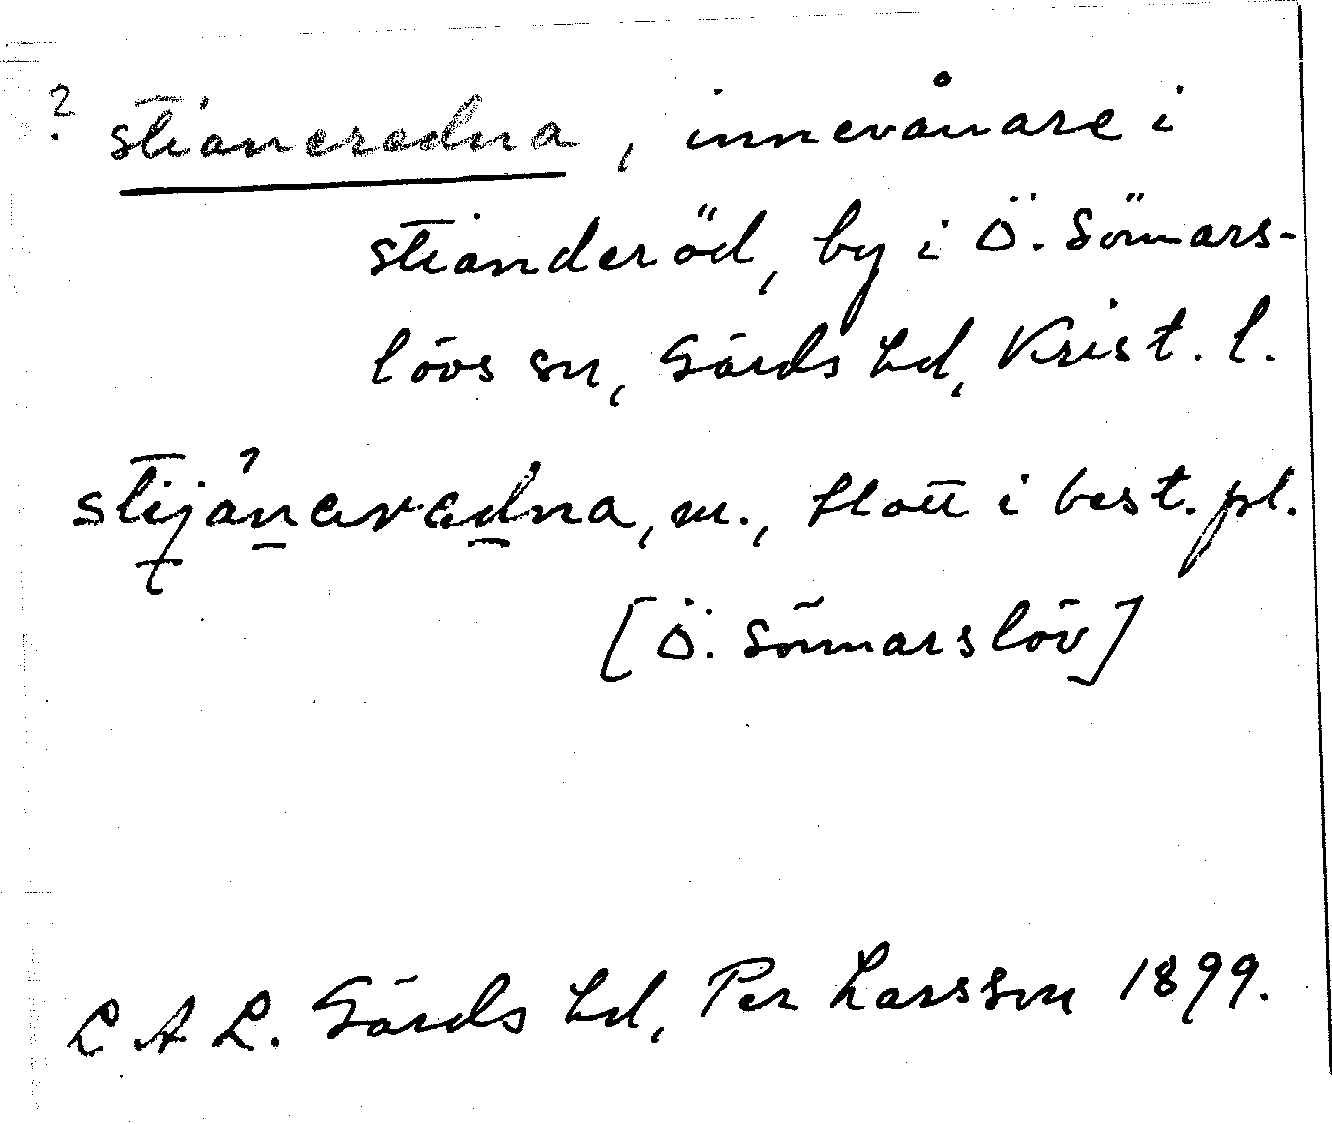 ? stianeradna, innevånare i
stianderöd, by i Ö. Sönnars-
lövs sn, Gärds hd, Krist. l.
m., blott i best. pl.
[Ö. Sönnarslöv]
L A L. Gärds hd, Per Larsson 1899.